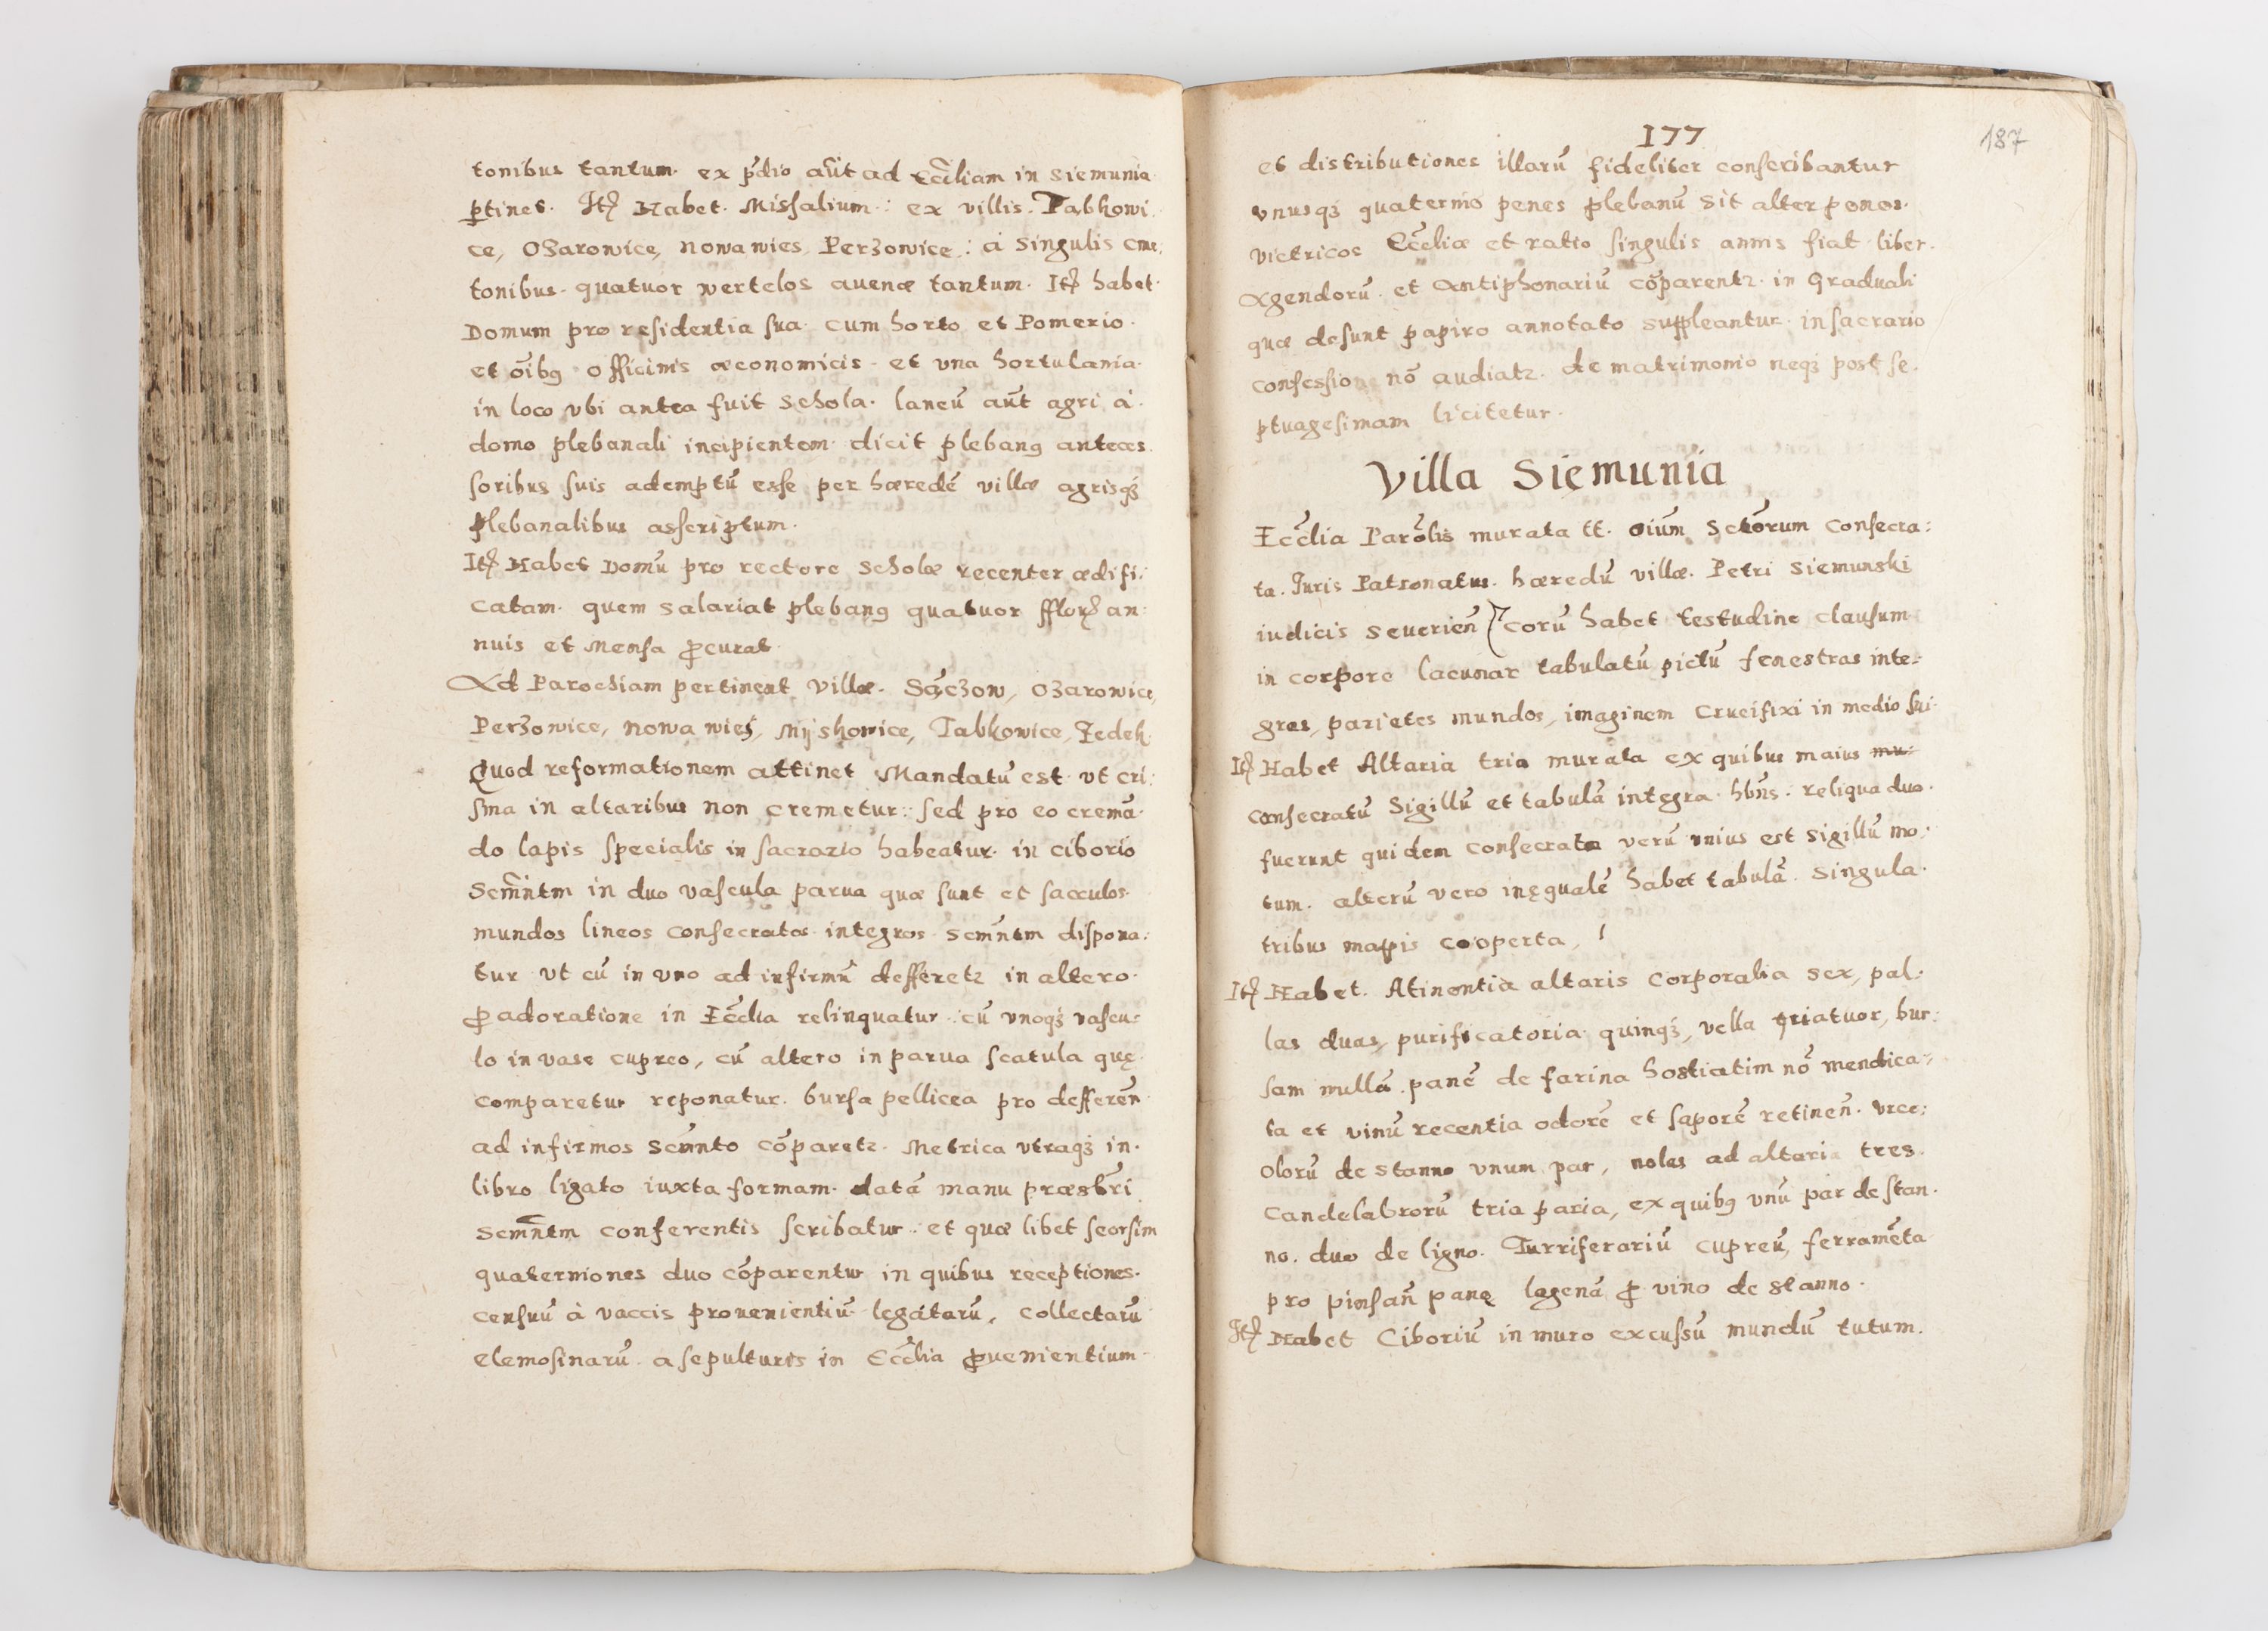 tonibus tantum. ex p̄dio aūt ad Eccl̄iam in Siemunia
ꝑtinet. Itꝫ Habet. Missalium: ex villis. Tabkowi
ce, Ozarowice, Nowawies Perzowice: à Singulis Cme:
tonibus. quatuor wertelos auenæ tantum. Itꝫ habet.
Domum pro residentia sua cum horto et Pomerio.
et oībꝰ officinis œconomicis et vna hortulania.
in loco vbi antea fuit Schola. laneū aūt agri à.
domo plebanali incipientem dicit plebanꝰ anteces
soribus suis ademptū esse per hæredē villæ agrisqꝫ
plebanalibus asscriptum.
Itꝫ Habet Domū pro rectore Scholæ recenter ædifi:
catam. quem salariat plebanꝰ quatuor fflorꝫ an:
nuis et Mensa ꝓcurat.
Ad Parochiam pertinent Villæ. Sączow, Ozarowice,
Perzowice, Nowa wieś, Myshowice, Tabkowice, Zedek.
Quod reformationem attinet Mandatū est vt cri:
sma in altaribus non cremetur: sed pro eo cremā.
do lapis specialis in sacrario habeatur. in ciborio
Scm̄ntm in duo vascula parua quæ sunt et sacculos.
mundos lineos consecratos integros scm̄ntm dispona:
tur vt cū in vno ad infirmū defferetr in altero.
ꝓ adoratione in Eccl̄ia relinquatur: cū vnoqꝫ vascu:
lo in vase cupreo, cū altero in parua scatula quę
comparetur reponatur. bursa pellicea pro defferēn
ad infirmos Scm̄nto cōparetr. Metrica vtraqꝫ in.
libro ligato iuxta formam. datā manu præsb̄ri
Scm̄ntm conferentis scribatur: et quæ libet seorsim
quaterniones duo cōparentur in quibus receptiones.
censuū à vaccis prouenientiū legatarū, collectarū
elemosinarū. a sepulturis in Eccl̄ia ꝓuenientium
177
187
et distributiones illarū fideliter conscribantur
vnusqꝫ quaternio penes plebanū sit alter penes.
victricos Eccl̄iæ et ratio singulis annis fiat liber.
Agendorū. et Antiphonariū cōparentr. in Graduali
quæ desunt papiro annotato suppleantur. in sacrario
confessio nō audiatr. de matrimonio neqꝫ post se.
ptuagesimam licitetur.
Villa Siemunia
Eccl̄ia Parōlis murata tt. oiūm Sctōrum Consecra:
ta. Juris Patronatus. hæredū villæ. Petri Siemunski
iudicis Seueriēn corū habet testudine clausum
in corpore lacunar tabulatū pictū fenestras inte:
gras, parietes mundos, imaginem Crucifixi in medio sui.
Itꝫ Habet Altaria tria murata ex quibus maius mu:
consecratū Sigillū et tabulā integra. hbn̄s. reliqua duo.
fuerunt quidem consecrata verū vnius est sigillū mo:
tum. alterū vero inęqualē habet tabulā. Singula.
tribus mappis cooperta,
Itꝫ Habet. Atinentia altaris Corporalia sex, pal:
las duas, purificatoria quinqꝫ, vella quatuor, bur:
sam nullā. panē de farina hostiatim nō mendica:
ta et vinū recentia odorē et saporē retinēn. Vrce:
olorū de stanno vnum par, nolas ad altaria tres.
Candelabrorū tria paria, ex quibꝰ vnū par de stan.
no. duo de ligno. Turriferariū cupreū, ferramēta
pro pinsān panę lagenā ꝓ vino de stanno.
Itꝫ Habet Ciboriū in muro excussū mundū tutum.